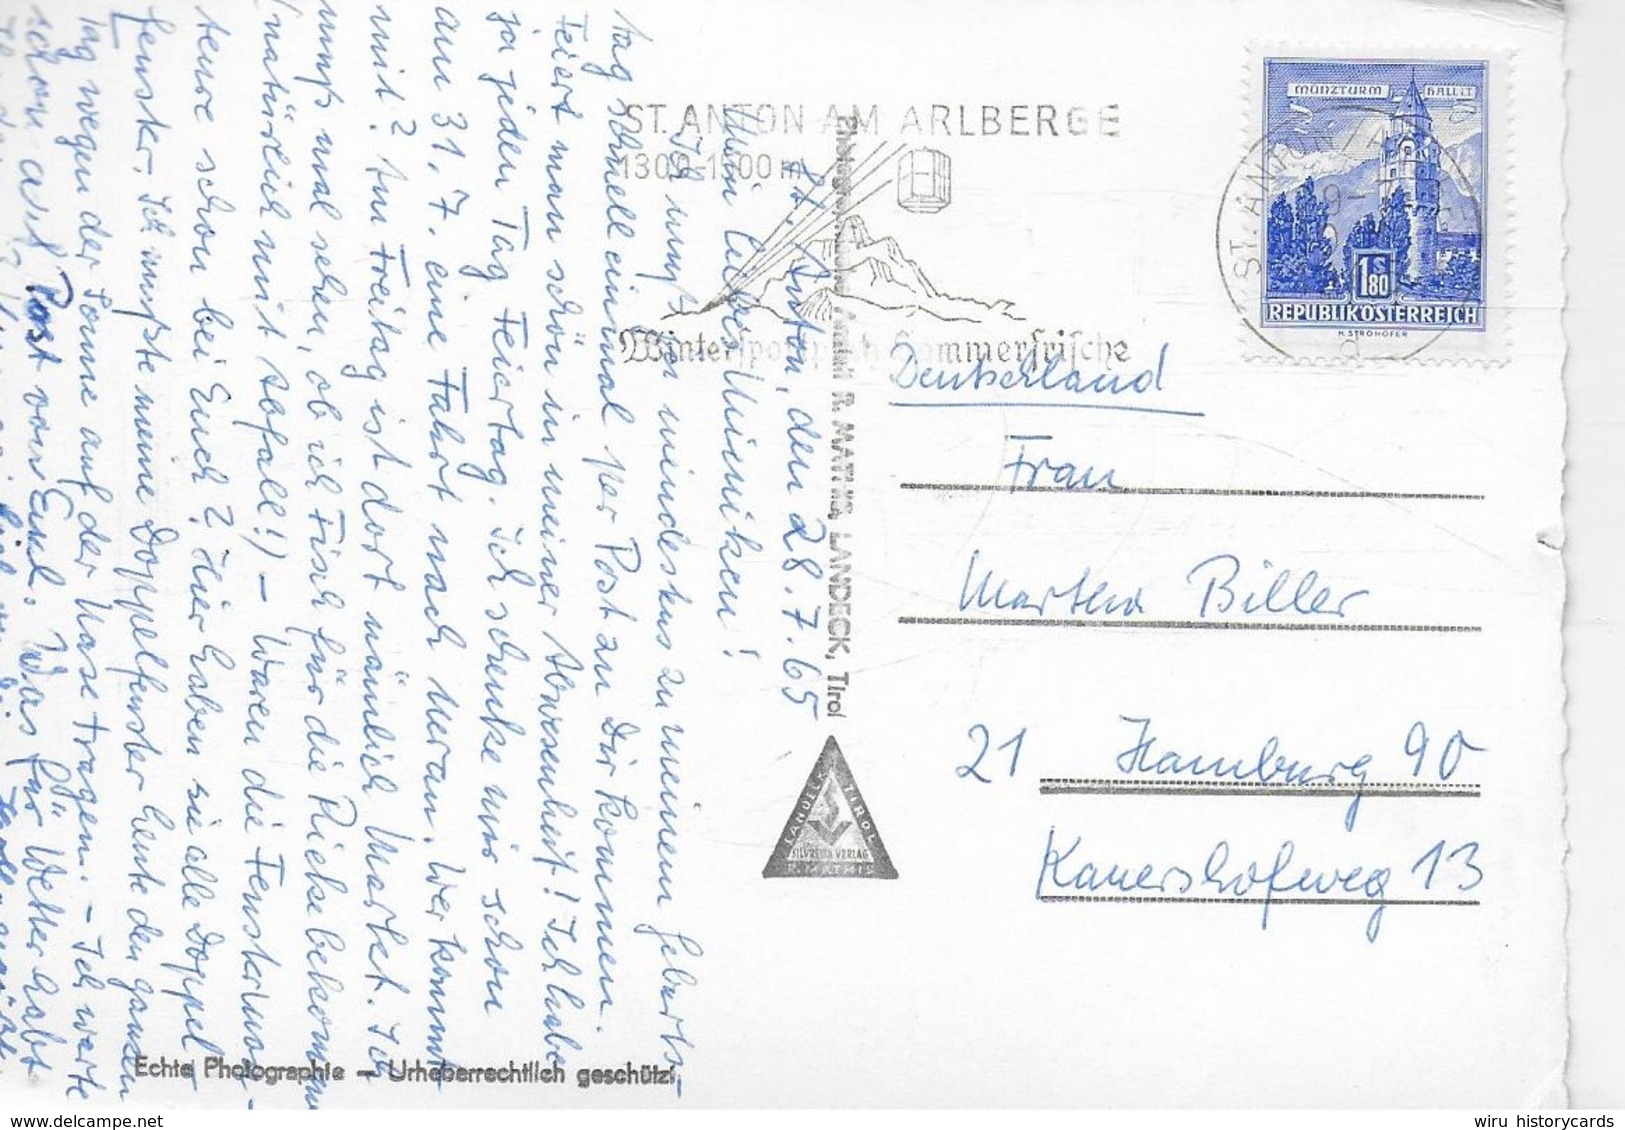 St. Anton, den 28.7.65
Mein liebes Minniken!
Ich muß in mindestens zu meinem Geburts-
tag schnell einmal per Post zu Dir kommen.
Feiert man schön in meiner Abwesenheit! Ich habe
ja jeden Tag Feiertag. Ich schenke mir schon
am 31.7. eine Fahrt nach Meran. Wer kommt
mit? Am Freitag ist dort nämlich Markt. Ich
muß mal sehen, ob ich Fisch für die Rieke bekomme
(natürlich mit Abfall!) – Waren die Fensterwor-
tenre schon bei Euch? Hier haben sie alle Doppel-
fenster. Ich müßte meine Doppelfenster heute den ganzen
Tag wegen der Sonne auf der Nase tragen. – Ich warte
schon auf Post von Euch. Was für Wetter habt
ST. ANTON AM ARLBERGE
1300-1500 m
Wintersport und Sommerfrische
MÜNZTURM HALL i.T.
1 S 80
REPUBLIK ÖSTERREICH
H. STROHOFER
ST. ANTON
Deutschland
Frau
Martha Biller
21 Hamburg 90
Kauershofweg 13
R. MATHIS, LANDECK, Tirol
LANDECK TIROL
VERLAG
R. MATHIS
Echte Photographie – Urheberrechtlich geschützt
wiru historycards